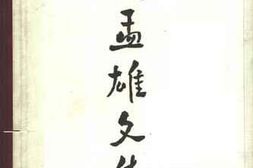 孟雄文